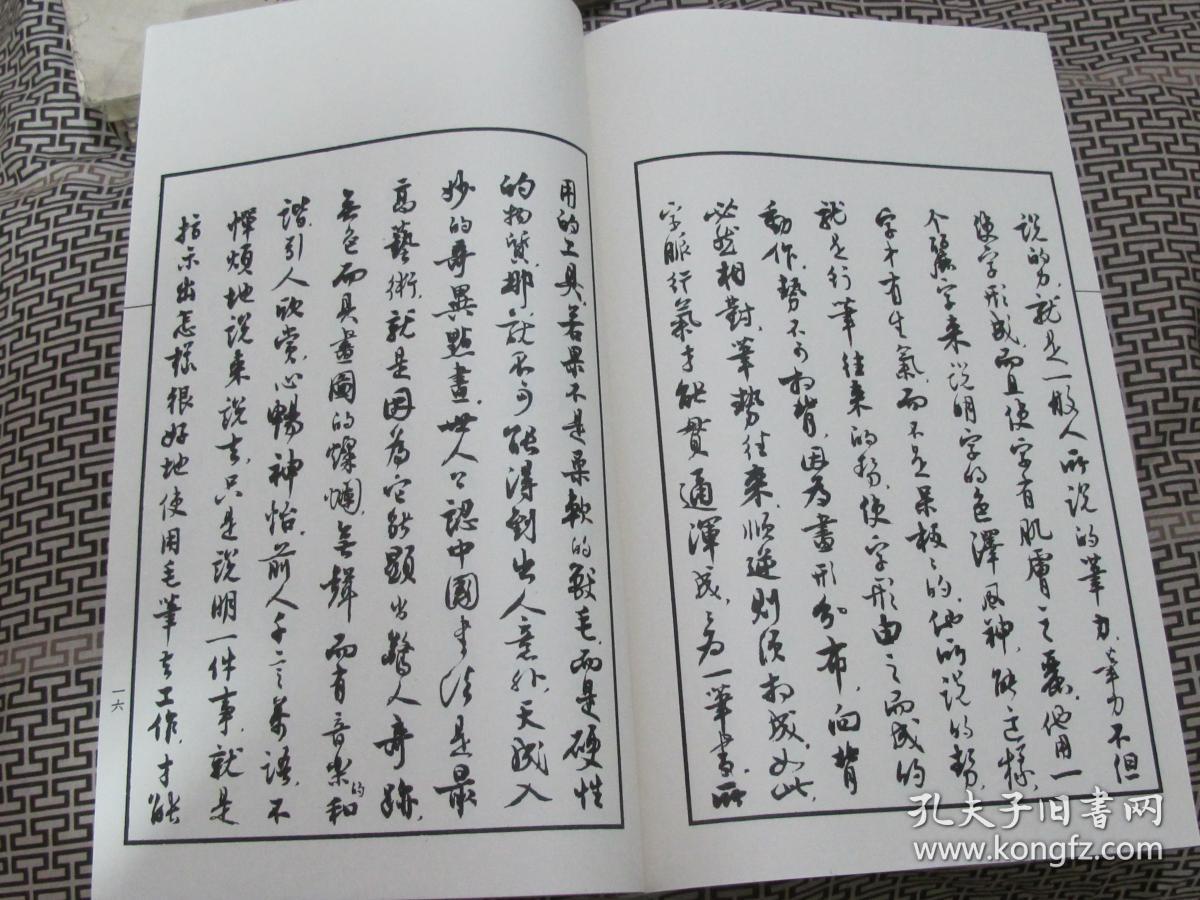 说的力,就是一般人所说的筆力,筆力不但
使字形成,而且使字有肌膚之麗,他用一
个麗字来说明字的色澤風神,能这樣,
字才有生氣,而不是呆板之的,他所说的勢,
就是行筆往来的勢,使字形由之而成的
動作,勢不可相背,因為畫形分布,向背
必然相對,筆勢往来,順逆則須相成,如此,
字脈行氣才能貫通渾成,之为一筆書,所
用的工具,若果不是柔軟的獸毛,而是硬性
的物質,那就不可能得到出人意外,天然入
妙的奇異點畫,世人公認中國書法是最
高藝術,就是因為它能顯出驚人奇跡,
無色而具畫圖的燦爛,無聲而有音樂的和
諧,引人欣赏,心暢神怡,前人千言萬語,不
憚煩地说来说去,只是说明一件事,就是
指示出怎樣很好地使用毛筆去工作,才能
一六
孔夫子旧書网
www.kongfz.com